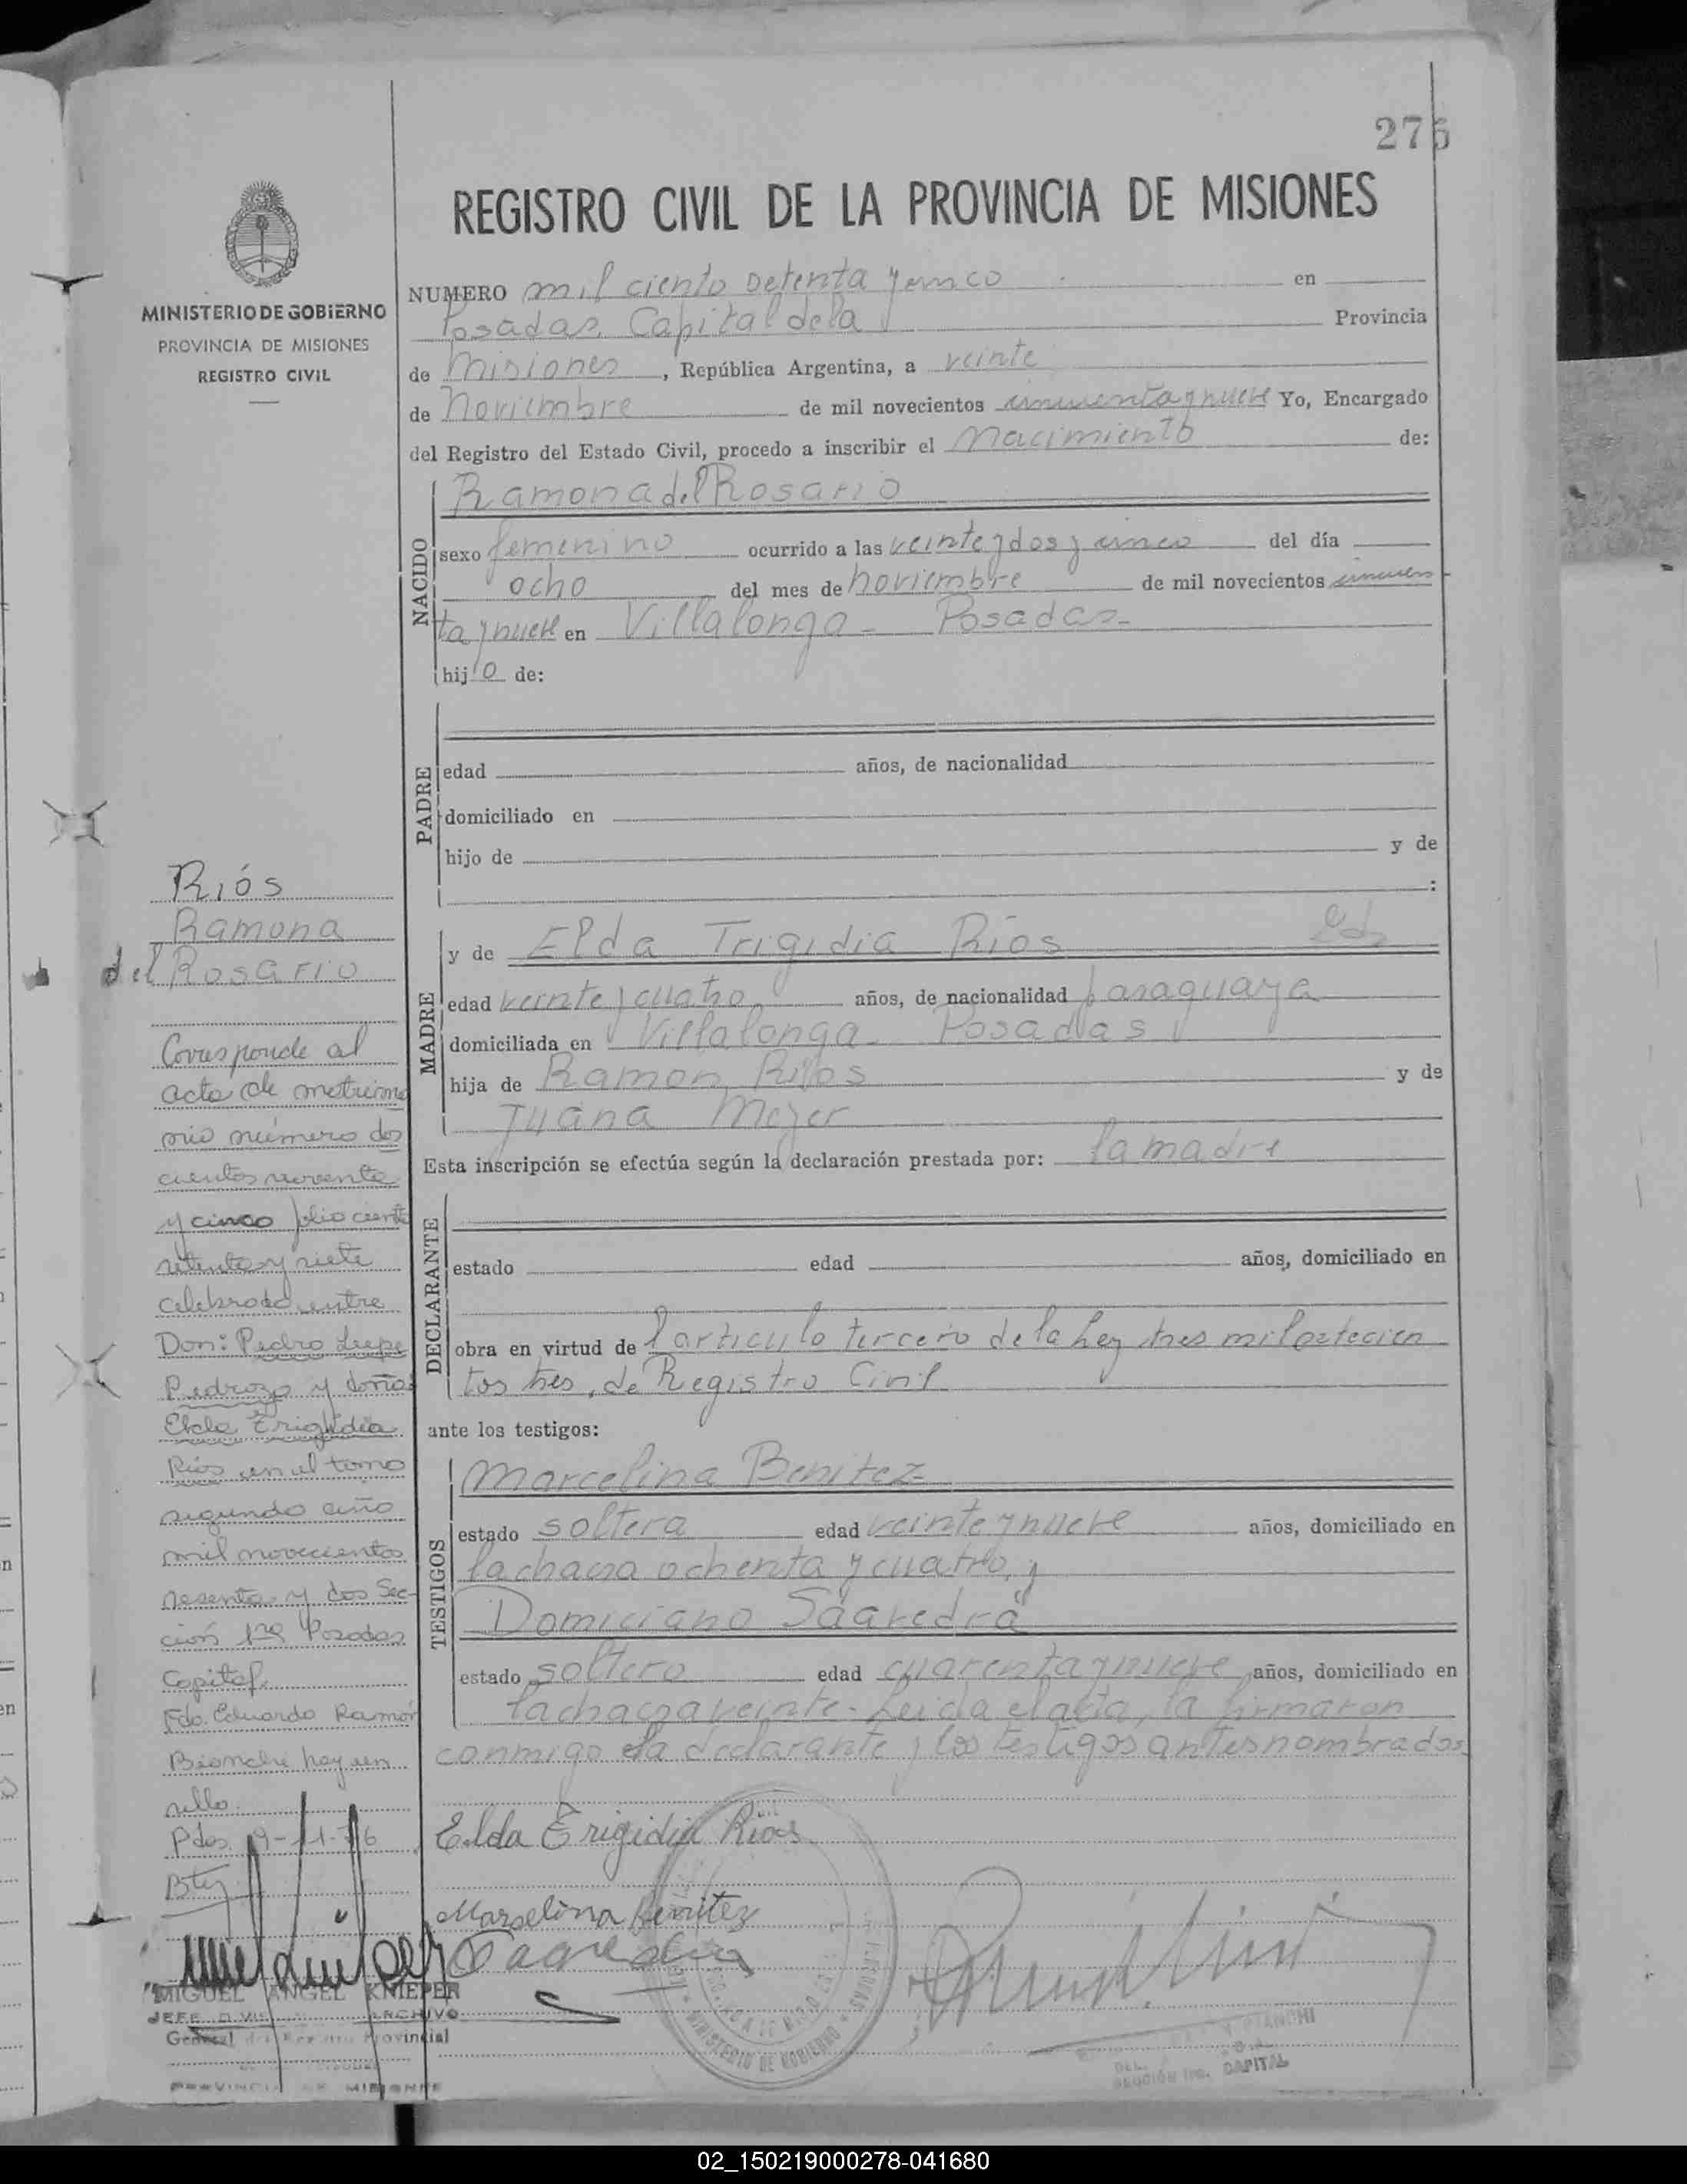 275
REGISTRO CIVIL DE LA PROVINCIA DE MISIONES
MINISTERIO DE GOBIERNO
PROVINCIA DE MISIONES
REGISTRO CIVIL
NUMERO mil ciento setenta y cinco en
Posadas, Capital de la Provincia
de Misiones, República Argentina, a veinte
de Noviembre de mil novecientos cincuenta y nueve Yo, Encargado
del Registro del Estado Civil, procedo a inscribir el Nacimiento de:
NACIDO
Ramona del Rosario
sexo femenino ocurrido a las veinte y dos y cinco del día
ocho del mes de noviembre de mil novecientos cincuen
ta y nueve en Villalonga - Posadas-
hijo de:
PADRE
edad años, de nacionalidad
domiciliado en
hijo de y de
:
MADRE
y de Elda Trigidia Rios
edad veinte y cuatro, años, de nacionalidad paraguaya
domiciliada en Villalonga - Posadas
hija de Ramon Rios y de
Juana Mejer
Esta inscripción se efectúa según la declaración prestada por: la madre
DECLARANTE
estado edad años, domiciliado en
obra en virtud de l articulo tercero de la Ley tres mil setecien
tos tres, de Registro Civil
ante los testigos:
TESTIGOS
Marcelina Benitez
estado soltera edad veinte y nueve años, domiciliado en
la chacra ochenta y cuatro, y
Domiciano Saavedra
estado soltero edad cuarenta y nueve, años, domiciliado en
la chacra veinte. Leida el acta, la firmaron
conmigo la declarante y los testigos antes nombrados
Elda Erigidia Rios
Marselina Benitez
Saavedra
MINISTERIO DE GOBIERNO
CAPITAL
Riós
Ramona
del Rosario
Corresponde al
acta de matrimo
nio número dos
cientos noventa
y cinco folio ciento
setenta y siete
celebrado entre
Don: Pedro Lupe
Pedrozo y doña
Elda Erigidia
Rios en el tomo
segundo año
mil novecientos
sesenta y dos Sec-
ción 1ra Posadas
Capital.
Fdo. Eduardo Ramón
Bianchi hay un
sello.
Pdas. 9-11-76
MIGUEL ANGEL KNIEPER
JEFE ARCHIVO
General del Provincial
PROVINCIA DE MISIONES
02_150219000278-041680